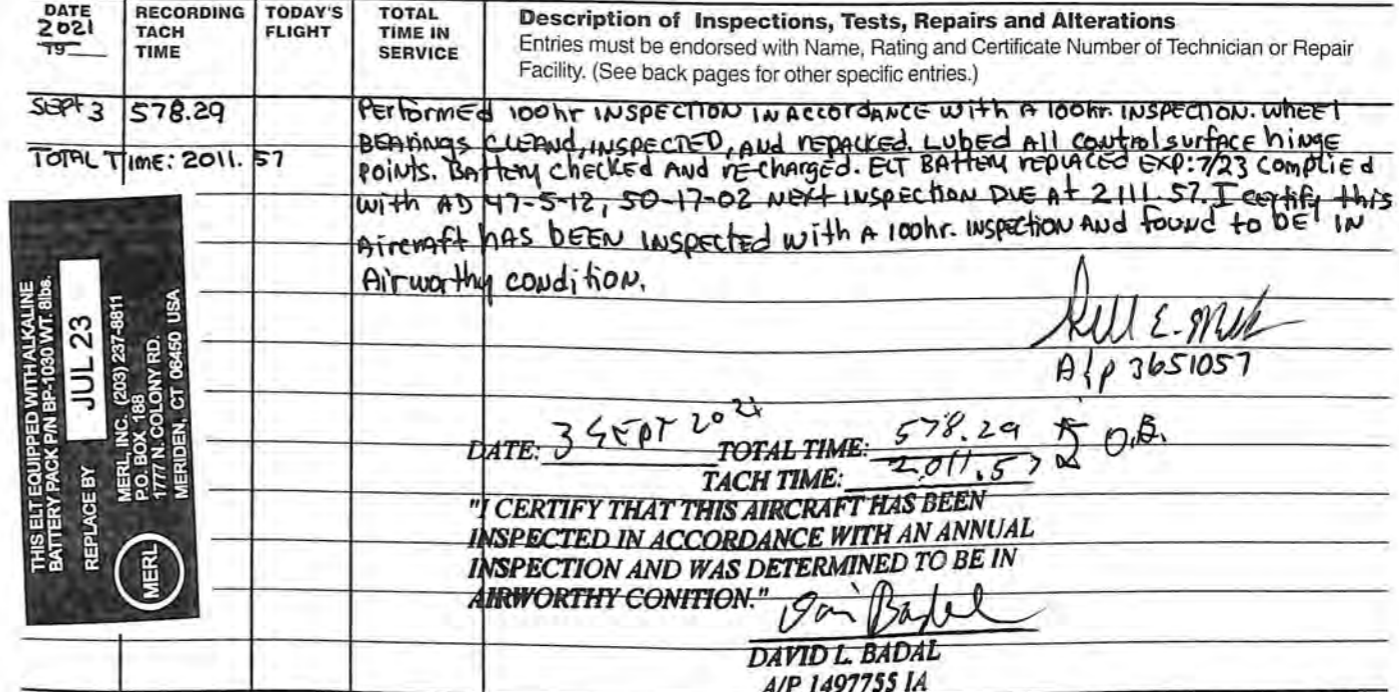 DATE
2021
19
RECORDING
TACH
TIME
TODAY'S
FLIGHT
TOTAL
TIME IN
SERVICE
Description of Inspections, Tests, Repairs and Alterations
Entries must be endorsed with Name, Rating and Certificate Number of Technician or Repair
Facility. (See back pages for other specific entries.)
SEPT 3
578.29
TOTAL TIME: 2011.57
Performed 100hr INSPECTION IN ACCORDANCE with A 100hr. INSPECTION. Wheel
BEARINGS CLEAND, INSPECTED, AND REPACKED. Lubed All control surface hinge
points. Battery checked And re-charged. ELT BATTERY replaced EXP: 7/23 Complied
with AD 47-5-12, 50-17-02 NEXT INSPECTION DUE At 2111.57. I certify this
Aircraft HAS BEEN INSPECTED with A 100hr. INSPECTION AND found to BE IN
Airworthy condition.
A&P 3651057
THIS ELT EQUIPPED WITH ALKALINE
BATTERY PACK P/N BP-1030 WT. 8lbs.
REPLACE BY JUL 23
MERL
MERL, INC. (203) 237-8811
P.O. BOX 188
1777 N. COLONY RD.
MERIDEN, CT 06450 USA
DATE: 3 SEPT 2021 TOTAL TIME: 578.29
TACH TIME: 2,011.57
D.B.
"I CERTIFY THAT THIS AIRCRAFT HAS BEEN
INSPECTED IN ACCORDANCE WITH AN ANNUAL
INSPECTION AND WAS DETERMINED TO BE IN
AIRWORTHY CONITION."
DAVID L. BADAL
A/P 1497755 IA